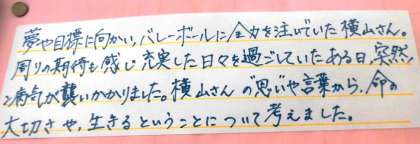 夢や目標に向かい、バレーボールに全力を注いでいた横山さん。
周りの期待も感じ充実した日々を過ごしていたある日、突然
病気が襲いかかりました。横山さんの思いや言葉から、命の
大切さや、生きるということについて考えました。